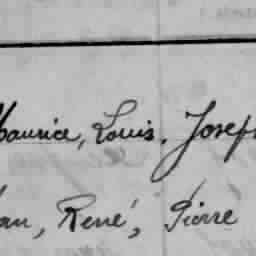 Maurice, Louis. Joseph
Jean, René, Pierre